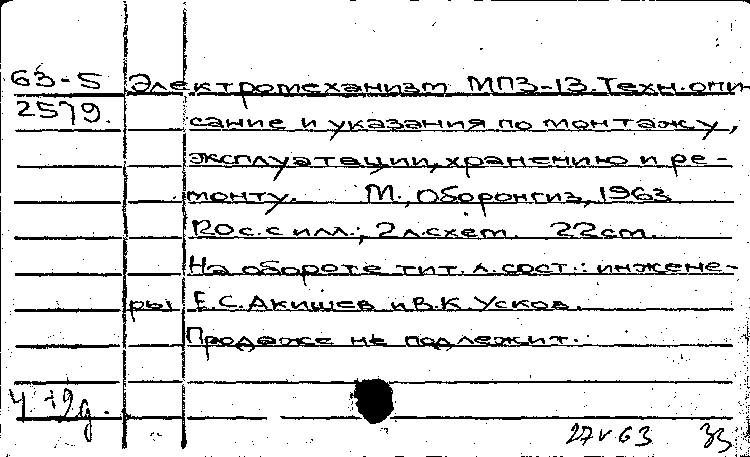 63-5 Электромеханизм МПЗ-13. Техн. опи-
2579. сание и указания по монтажу,
эксплуатации, хранению и ре-
монту. М., Оборонгиз, 1963
120 с. с илл.; 2 л. схем. 22 см.
На обороте тит. л. сост.: инжене-
ры Е.С. Акишев и В.К. Усков.
Продаже не подлежит.
27 V 63